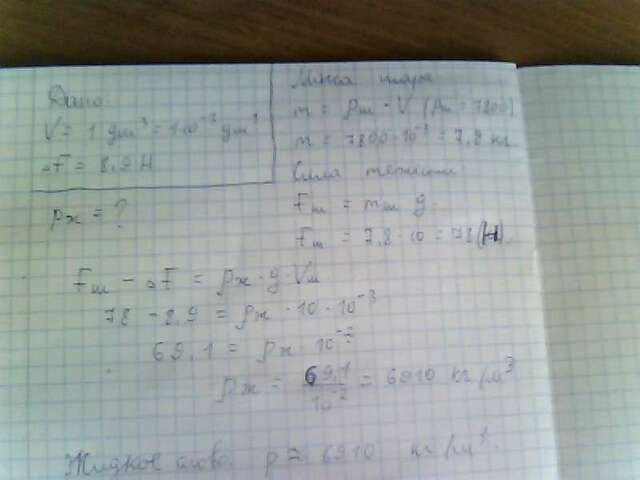 Дано
V = 1 дм³ = 1·10⁻³ дм³
F = 8,9 Н
ρж = ?
Масса шара
m = ρш · V (ρш = 7800)
m = 7800·10⁻³ = 7,8 кг
Сила тяжести
Fш = mш g.
Fш = 7,8 · 10 = 78 (Н).
Fш - F = ρж · g · Vш
78 - 8,9 = ρж · 10 · 10⁻³
69,1 = ρж · 10⁻²
ρж = 69,1 / 10⁻² = 6910 кг/м³
Жидкое олово. ρ = 6910 кг/м³.